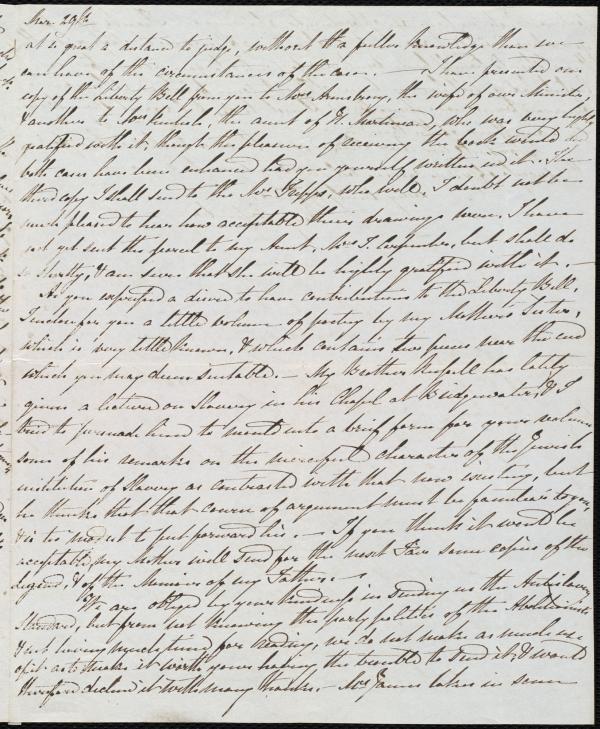 Mar. 29th
at so great a distance to judge, without a fuller knowledge than we
can have of the circumstances of the case. — I have presented one
copy of the Liberty Bell from you to Mrs Armstrong, the wife of our Minister,
& another to Mrs the aunt of H. Martineau, who was very highly
gratified with it, though the pleasure of receiving the book would in
both cases have been enhanced had you yourself written in it. The
third copy I shall send to the Mrs who will, I doubt not be
much pleased to hear how acceptable their drawings were. I have
not yet sent the parcel to my Aunt, Mrs T. Carpenter, but shall do
so shortly, & am sure that she will be highly gratified with it. —
As you expressed a desire to have contributions to the Liberty Bell,
I inclose for you a little volume of poetry by my Mother's Sister,
which is very little known, & which contains two pieces near the end
which you may deem suitable. — My Brother Russell has lately
given a lecture on Slavery in his Chapel at Bridgewater, & I
tried to persuade him to mould into a brief form for your volume
some of his remarks on the merciful character of the Jewish
institution of Slavery as contrasted with that now existing, but
he thinks that that course of argument must be familiar to you,
& is too modest to put forward his. — If you think it would be
acceptable my Mother will send for the next Fair some copies of the
legend, & of the Memoir of my Father. —
We are obliged by your kindness in sending us the Antislavery
Standard, but from not knowing the party politics of the Abolitionists
& not having much time for reading, we do not make as much use
of it as to make it worth your having the trouble to send it, & would
therefore decline it with many thanks. — Mrs James takes in some